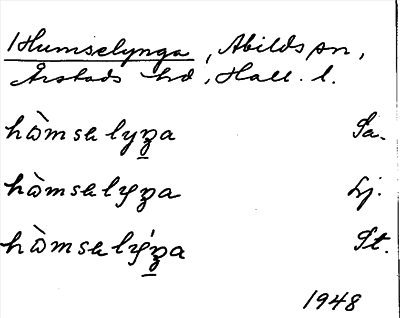 Humselynga, Abilds sn,
Årstads hd, Hall. l.
hò̤msalyŋa Sa.
hò̤msalyŋa Lj.
hò̤msalýŋa St.
1948